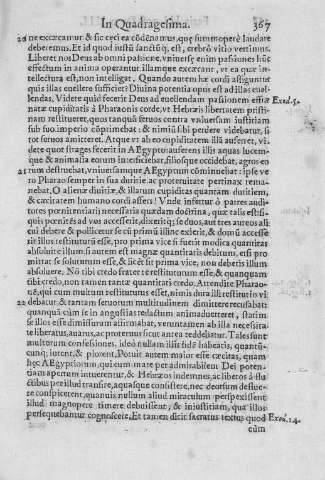 In Quadragesima. 367
20 ne excæcamur & sic cęci ea cõdẽnamus, quę summopere laudare
deberemus. Et id quod iustũ sanctũq́, est, crebrò vitio vertimus.
Liberet nos Deus ab omni passione, vniuersę enim passiones hũc
effectum in anima operantur illamque excæcant, vt ea quæ in-
tellectura est, non intelligat. Quando autem hæ cordi affiguntur
quis illas euellere sufficiet? Diuina potentia opus est ad illas euel-
lendas. Videte quid fecerit Deus ad euellendam passionem effræ Exod.5.
natæ cupiditatis à Pharaonis corde, vt Hebræis libertatem pristi-
nam restitueret, quos tanquã seruos contra vniuersam iustitiam
sub suo imperio cõprimebat: & nimiũ sibi perdere videbatur, si
tot seruos amitteret. Atque vt ab eo cupiditatem illã auferret, vi-
dete quot strages fecerit in AEgyptum auferens illis aquas lucem-
que & animalia eorum interficiebat, filiosque occidebat, agros en
21 rum destruebat, vniuersamque AEgyptum cõminuebat: ipse ve-
ro Pharao semper in sua duritie ac proteruitate pertinax rema-
nebat. O alienæ diuitiæ, & illarum cupiditas quantam duritiem,
& cæcitatem humano cordi affers! Vnde infertur ò patres audi-
tores pœnitentiarij necessaria quædam doctrina, quæ talis est: si-
quis pœnitẽs ad vos accesserit, dixeritq́; se duos, aut tres aureos ali-
cui debere & pollicetur se cũ primũ illinc exierit, & domũ accesse
rit illos restiturũ esse, pro prima vice si fuerit modica quantitas
absoluite illum, si autem est magnæ quantitatis debitum, etsi pro
mittat se soluturum esse, & licèt sit prima vice, non debetis illum
absoluere. Nõ tibi credo frater te restiturum esse, & quanquam
tibi credo, non tamen tantæ quantitatis credo. Attendite Pharao-
nẽ, qui cum multum restiturus esset, nimis dura illi restitutio vi
22 debatur, & tantam seruorum multitudinem dimittere recusabat:
quanquã cũm se in angustias redactum animaduerteret, statim
se illos esse dimissurum affirmabat, verumtamen ab illa necessita
te liberatus, auarus, ac proteruus sicut antea reddebatur. Tales sunt
multorum confessiones, ideò nullam illis fidẽ habeatis, quantũ-
cunq; iurent, & plorent. Potuit autem maior esse cæcitas, quam
hęc AEgyptiorum, qui cum mare per admirabilem Dei poten-
tiam apertum intuerentur, & Hebræos indemnes, ac liberos à flu-
ctibus per illud transire, aquasque consistere, nec deorsum defluere
conspicerent, quanuis nullum aliud miraculum perspexissent
illud magnopere timere debuissent, & iniustitiam, qua illos
persequebantur cognoscere. Et tamen dicit sacratus textus quod Exod.14.
cũm